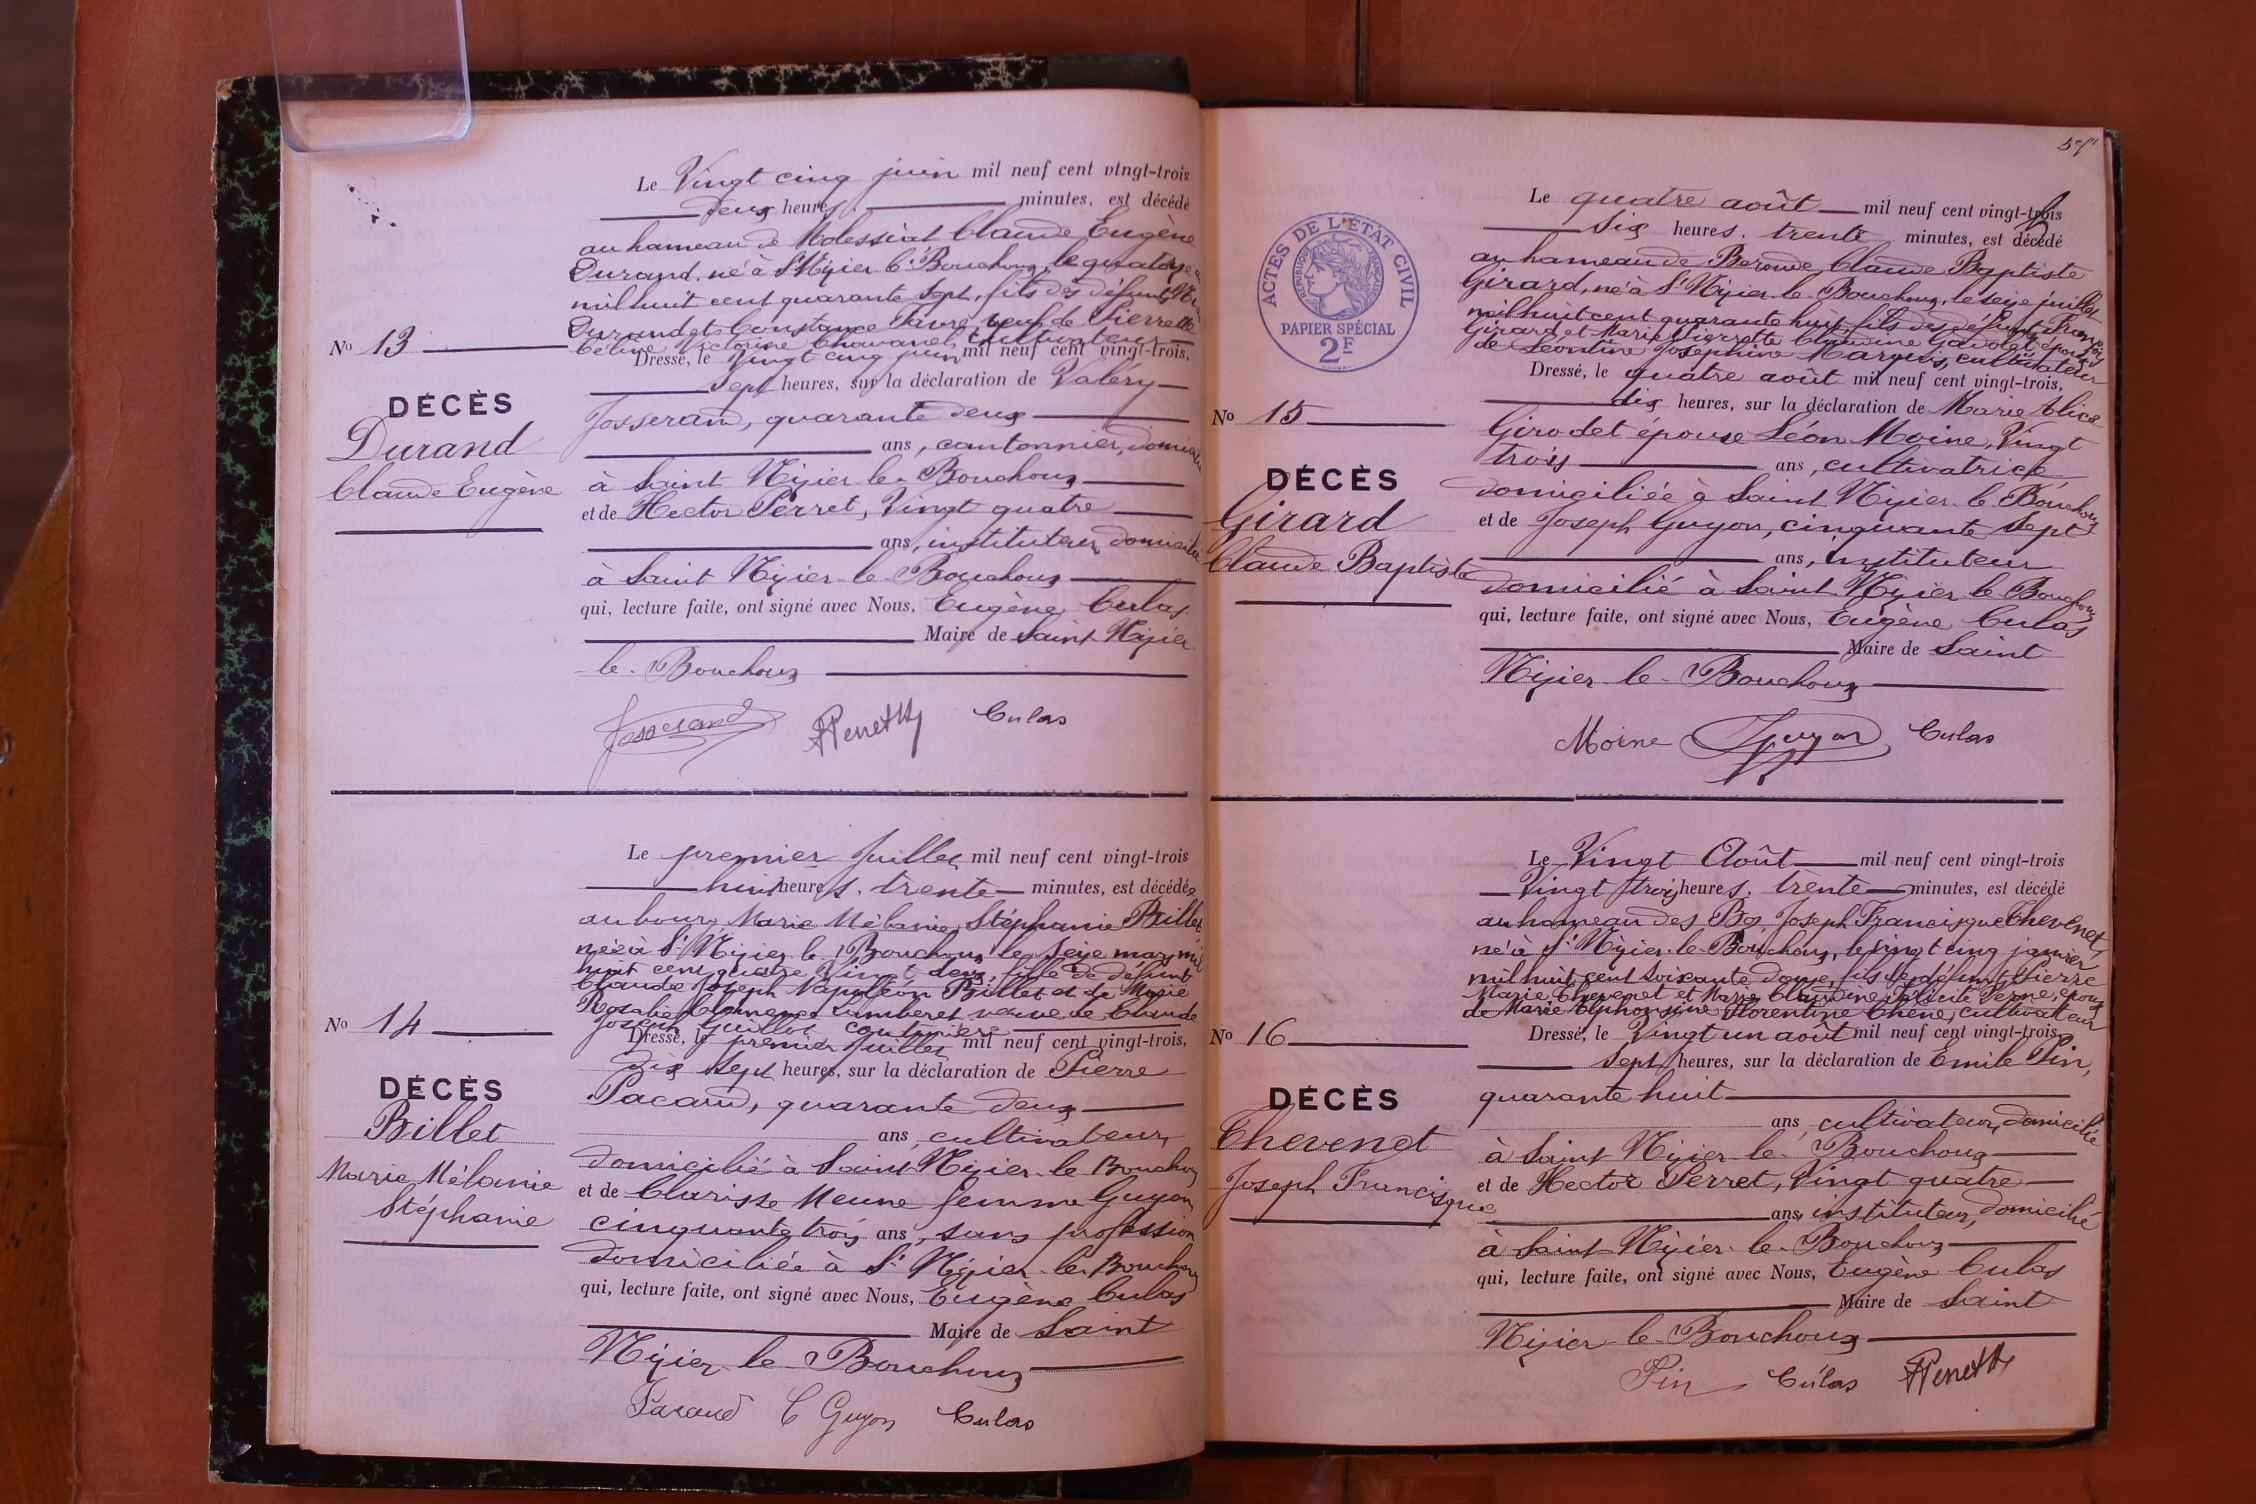 Le Vingt cinq juin mil neuf cent vingt-trois
deux heures minutes, est décédé
au hameau de Molessiat Claude Eugène
Durand, né à St Nizier le Bouchoux, le quatorze
mil huit cent quarante sept, fils des défunts
Durand et Constance Favre, veuf de Pierrette
Céline Victorine Chavanel, cultivateur
No 13
Dressé, le Vingt cinq juin mil neuf cent vingt-trois,
sept heures, sur la déclaration de Valéry
DÉCÈS
Josserand, quarante deux
Durand
ans, cantonnier, domicilié
Claude Eugène
à Saint Nizier le Bouchoux
et de Hector Perret, Vingt quatre
ans, instituteur, domicilié
à Saint Nizier-le-Bouchoux
qui, lecture faite, ont signé avec Nous, Eugène Culas
Maire de Saint Nizier
le-Bouchoux
Josserand Culas
Le premier Juillet mil neuf cent vingt-trois
huit heures, trente minutes, est décédée
au bourg Marie Mélanie Stéphanie Billet
née à St Nizier le Bouchoux le seize mars mil
huit cent quatre vingt deux, fille de défunt
Claude Joseph Napoléon Billet et de Marie
Rosalie Clémence Lumberet veuve de Claude
Joseph Guillot couturière
No 14
Dressé, le premier Juillet mil neuf cent vingt-trois,
dix sept heures, sur la déclaration de Pierre
DÉCÈS
Pacaud, quarante deux
Billet
ans, cultivateur,
Marie Mélanie
Stéphanie
domicilié à Saint Nizier-le Bouchoux
et de Clarisse Meune femme Guyon
cinquante trois ans, sans profession
domiciliée à St Nizier-le-Bouchoux
qui, lecture faite, ont signé avec Nous, Eugène Culas
Maire de Saint
Nizier-le-Bouchoux
Pacaud C Guyon Culas
Le quatre août mil neuf cent vingt-trois
six heures, trente minutes, est décédé
au hameau de Beronde Claude Baptiste
Girard, né à St Nizier-le-Bouchoux, le seize juillet
mil huit cent quarante huit, fils des défunts François
Girard et Marie Pierrette Claudine époux
de Léontine Joséphine Marquis, cultivateur
ACTES DE L'ETAT CIVIL
REPUBLIQUE FRANÇAISE
PAPIER SPÉCIAL
2F
No 15
Dressé, le quatre août mil neuf cent vingt-trois,
dix heures, sur la déclaration de Marie Alice
Girodet épouse Léon Moine, Vingt
trois ans, cultivatrice
DÉCÈS
domiciliée à Saint Nizier-le Bouchoux
Girard
et de Joseph Guyon, cinquante sept
ans, instituteur
Claude Baptiste
domicilié à Saint Nizier le Bouchoux
qui, lecture faite, ont signé avec Nous, Eugène Culas
Maire de Saint
Nizier-le-Bouchoux
Moine Guyon Culas
Le Vingt Août mil neuf cent vingt-trois
Vingt trois heures, trente minutes, est décédé
au hameau des Bos Joseph Francisque Chevenet,
né à St Nizier-le-Bouchoux, le vingt cinq janvier
mil huit cent soixante douze, fils de défunts Pierre
Marie Chevenet et Marie Claudine Félicité époux
de Marie Alphonsine Florentine Chêne, cultivateur
No 16
Dressé, le Vingt un août mil neuf cent vingt-trois,
sept heures, sur la déclaration de Emile Pin,
DÉCÈS
quarante huit
ans, cultivateur, domicilié
Chevenet
à Saint Nizier-le-Bouchoux
Joseph Francisque
et de Hector Perret, Vingt quatre
ans, instituteur, domicilié
à Saint Nizier-le-Bouchoux
qui, lecture faite, ont signé avec Nous, Eugène Culas
Maire de Saint
Nizier-le-Bouchoux
Pin Culas